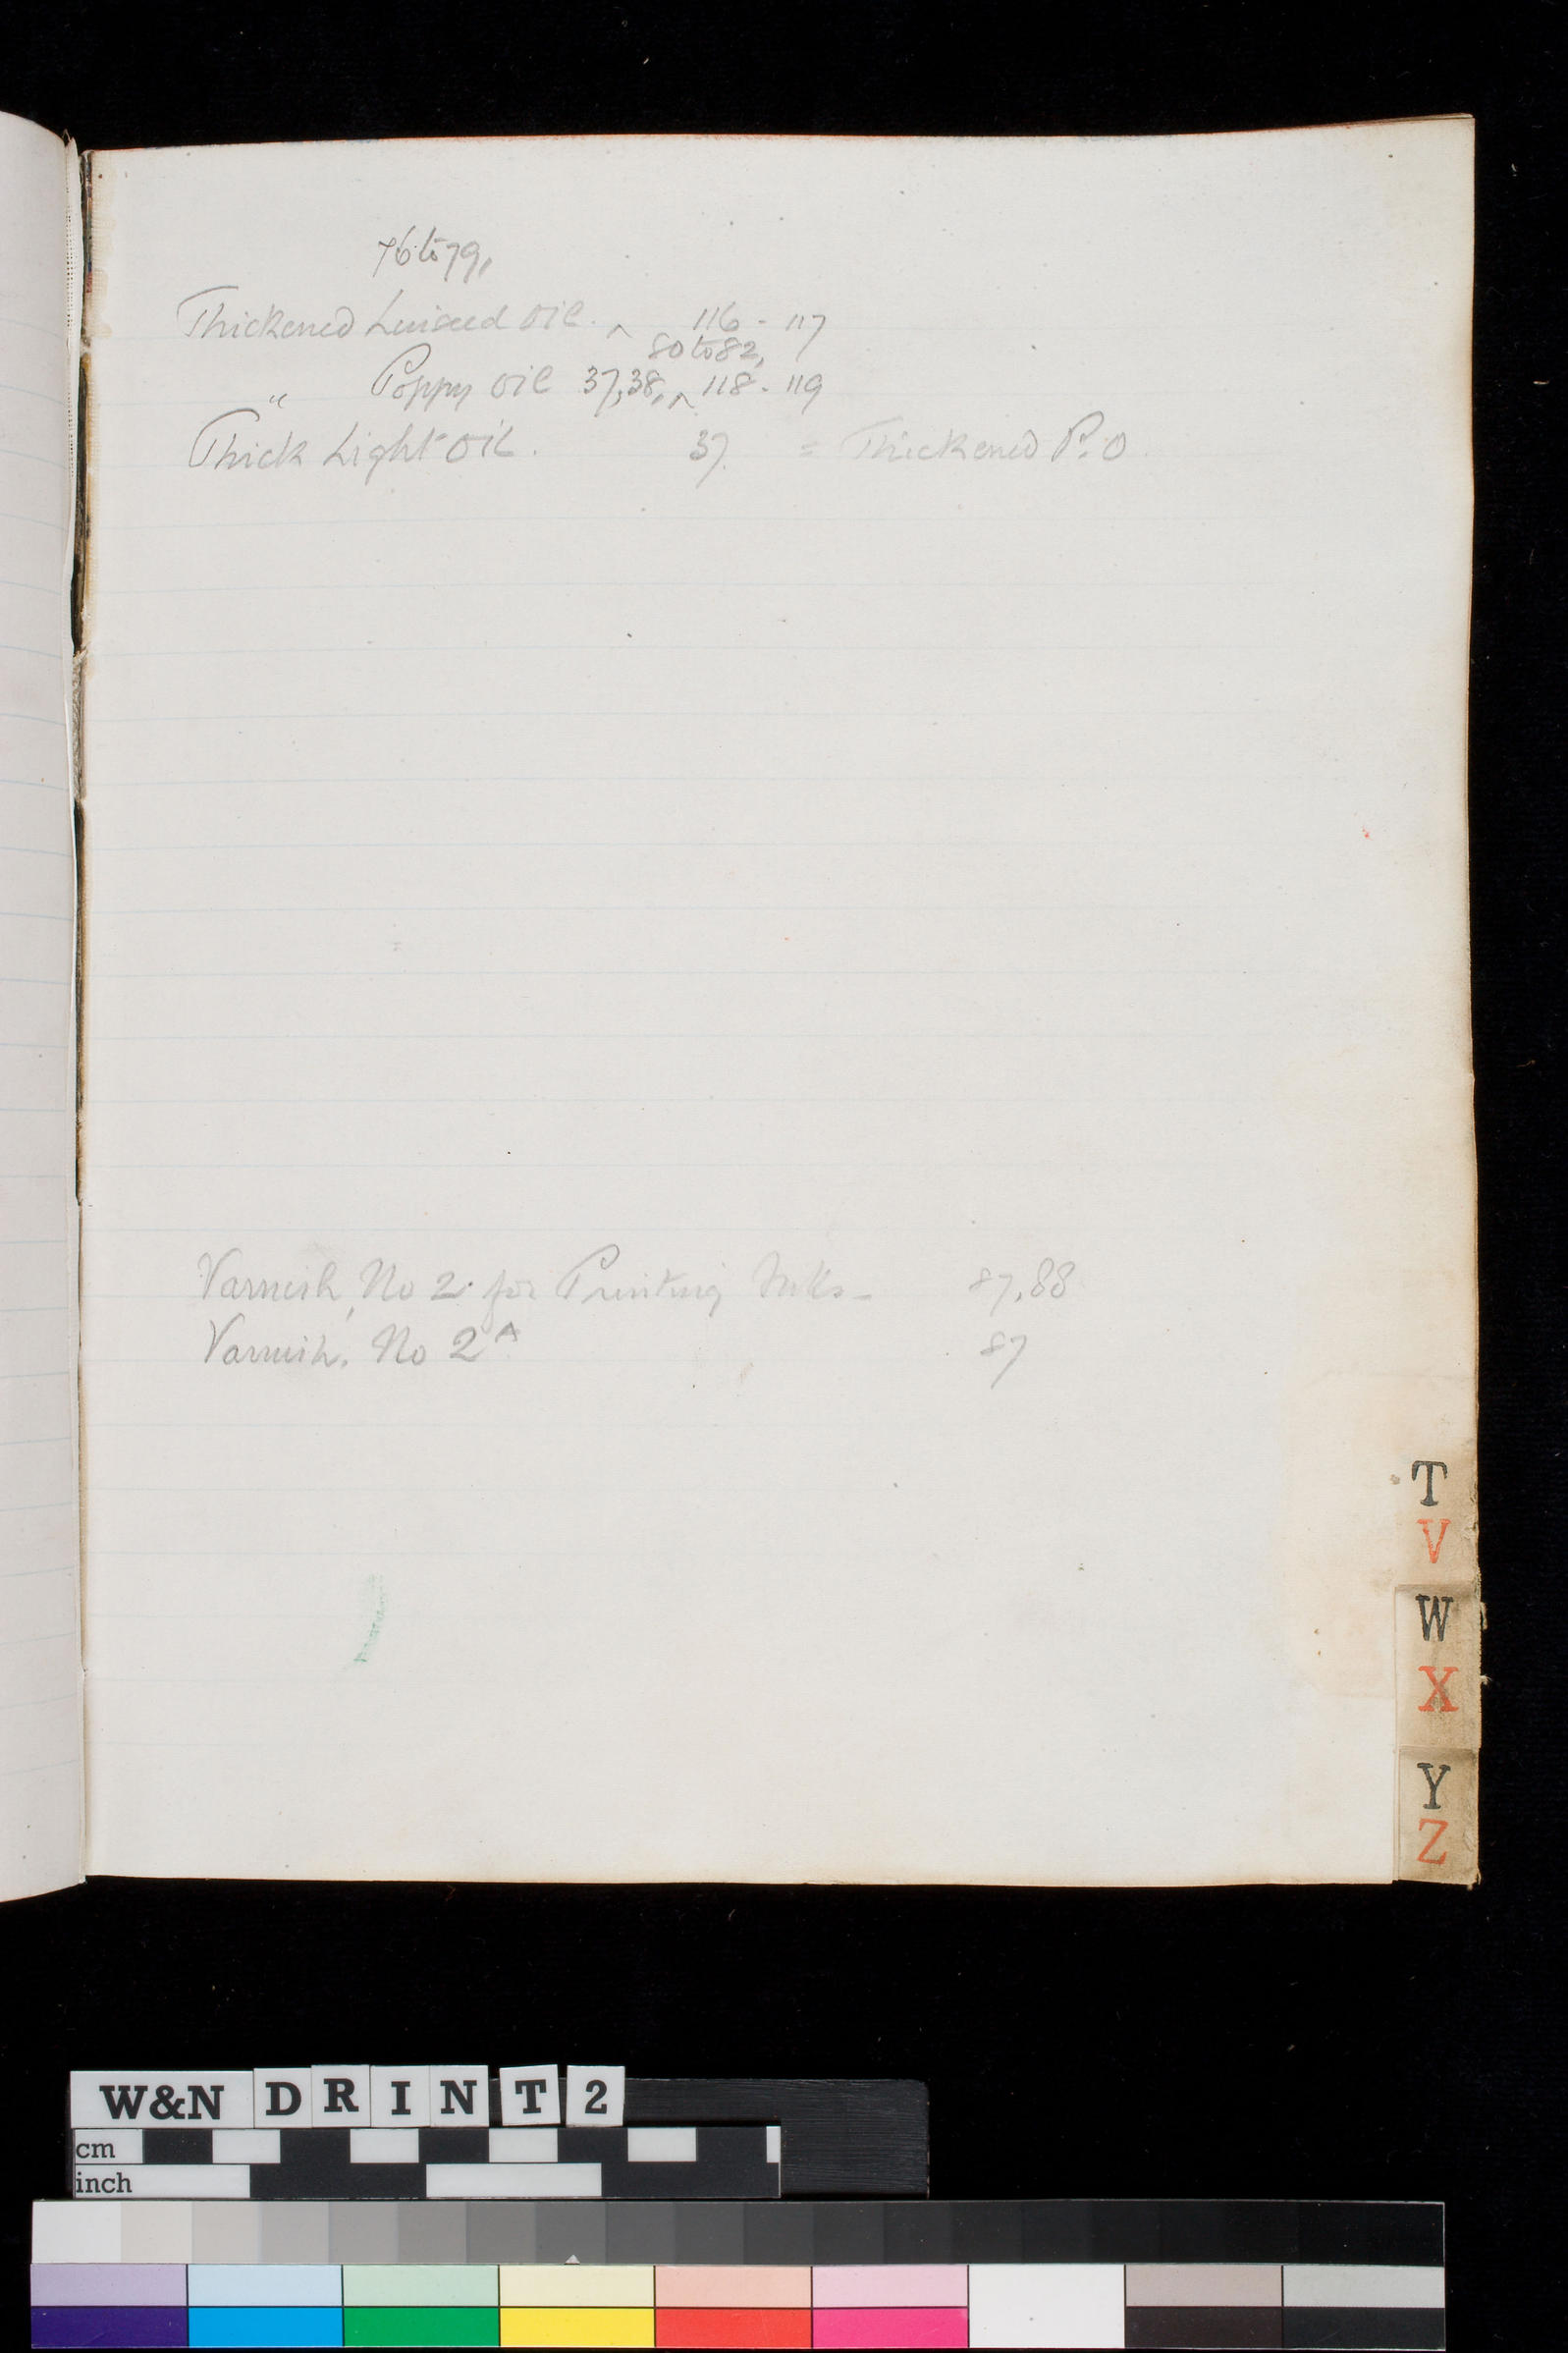 76 to 79,
Thickened Linseed Oil. ^ 116 - 117
80 to 82,
" Poppy Oil 37,38, ^ 118 - 119
Thick Light Oil. 37. = Thickened P.O.
Varnish, No 2. for Printing Inks - 87,88
Varnish. No 2A 87
T
V
W
X
Y
Z
W&N D R I N T 2
cm
inch